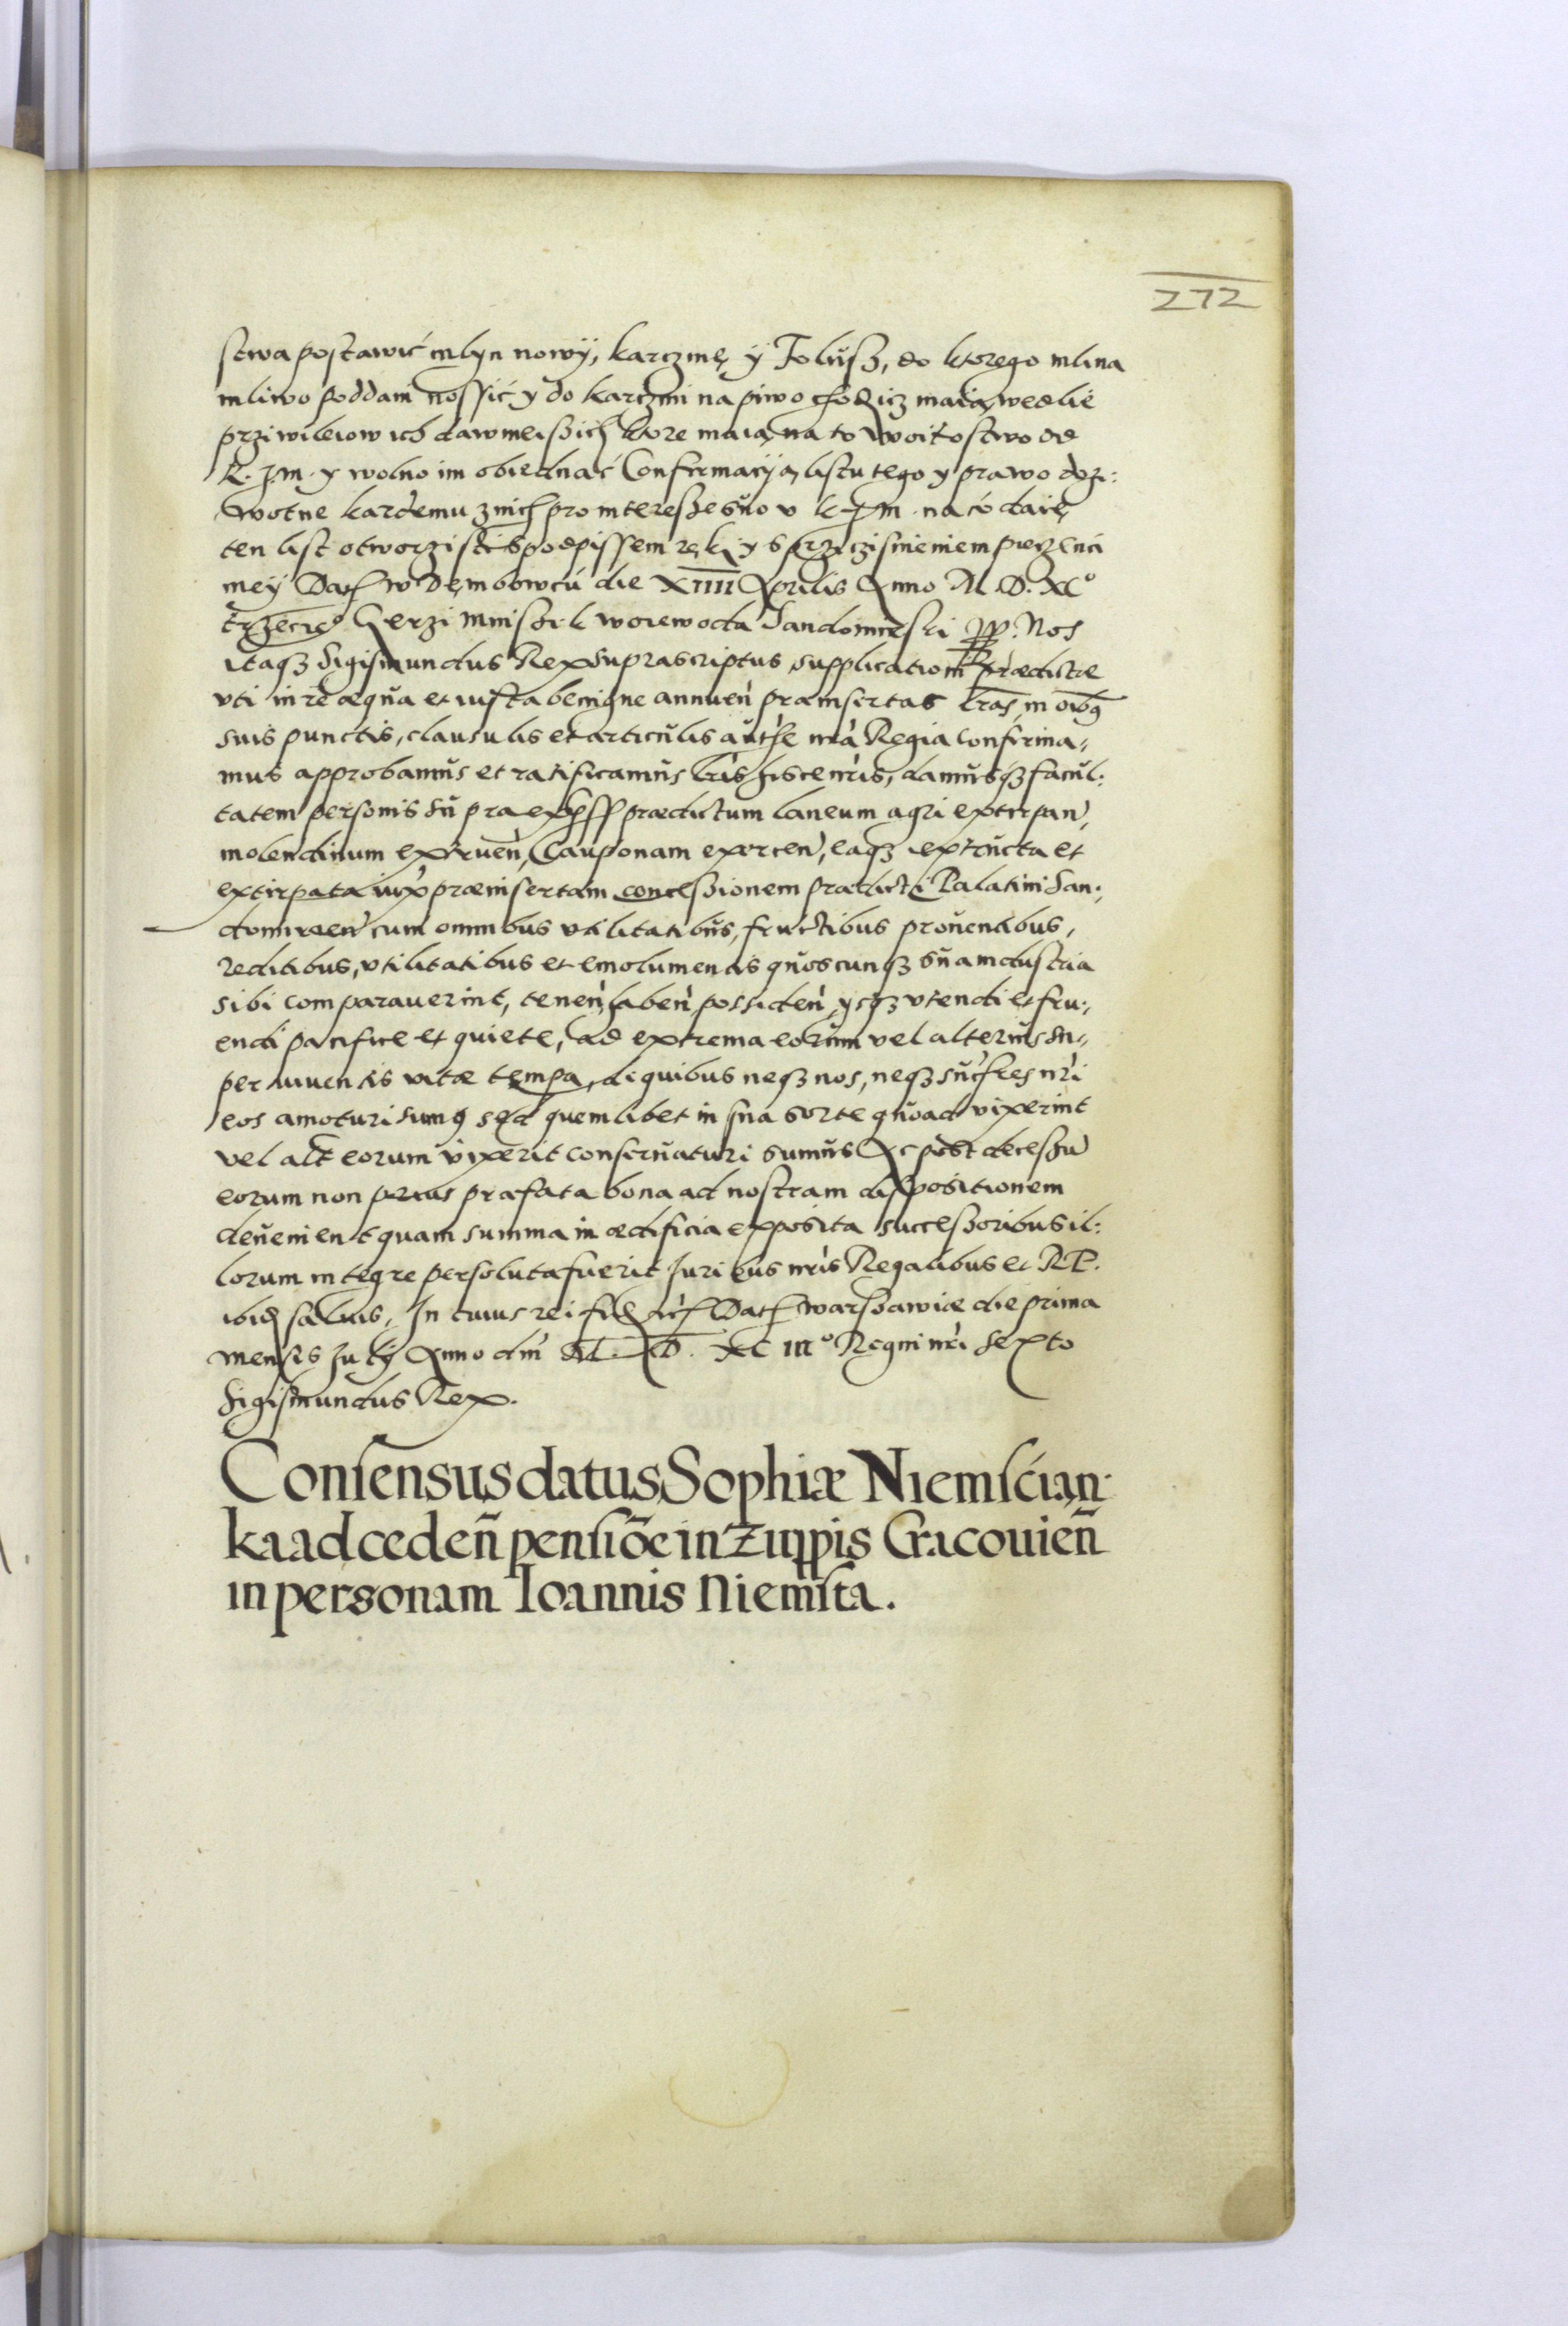 272
stwa postawić mlyn nowÿ, karczmę ÿ Foluʃz, do ktorego mlina
mliwo poddani noʃsić y do karczmi na piwo chodzicz maią wedlie
prziwileiow ich dawnieiszich ktore maią na to woitostwo od
K. J M. y wolno im obiednać Confirmacÿą listu tego y prawo dozi:
wotne kazdemu z nich pro interesse suo v K J M. na co daię
ten list otworzisti s podpissem ręki y s przicziśnieniem pieczęci
meÿ Dat w Dembowcu die XIIII Aprilis Anno M. D. XC°
trzecie° Gerzi Mniszek woiewoda Sandomirski pp. Nos
itaqȝ Sigismundus Rex suprascriptus supplicationi prædictæ
vti in re æqua et iusta benigne annuen̄ præinsertas lras in oibꝫ
suis punctis, clausulis et articulis autħe nrā Regia confirma,
mus approbamus et ratificamus lrīs hisce nrīs, damusqȝ facul:
tatem personis supra expʃʃ prædictum laneum agri extirpan̄,
molendinum extruen̄, Cauponam exercen̄, eaqȝ extructa et
extirpata iux præinsertam concessionem prædicti Palatini San:
domirien̄ cum omnibus vtilitatibus, fructibus prouentibus,
reditibus, vtilitatibus et emolumentis quoscunqȝ sua industria
sibi comparauerint, tenen̄, haben̄ possiden̄, ysqȝ vtendi et fru,
endi pacifice et quiete, ad extrema eorum vel alterius su,
per viuentis vitæ tempa, de quibus neqȝ nos, neqȝ sucħres nrī
eos amoturi sumꝰ sed quemlibet in sua sorte quoad vixerint
vel alt eorum vixerit conseruaturi sumus Ac post decessū
eorum non prius præfata bona ad nostram dispositionem
deuenient quam summa in ædificia exposita successoribus il:
lorum integre persoluta fuerit Juribus nrīs Regalibus et RP.
ibid saluis, In cuius rei fid etc Dat Warszawiæ die prima
mensis Julÿ Anno dni M. D. XC III° Regni nrī Sexto
Sigismundus Rex.
Consensus datus Sophiæ Niemścian,
ka ad ceden̄ pensiōe in Zuppis Cracouien̄
in personam Ioannis Niemsta.